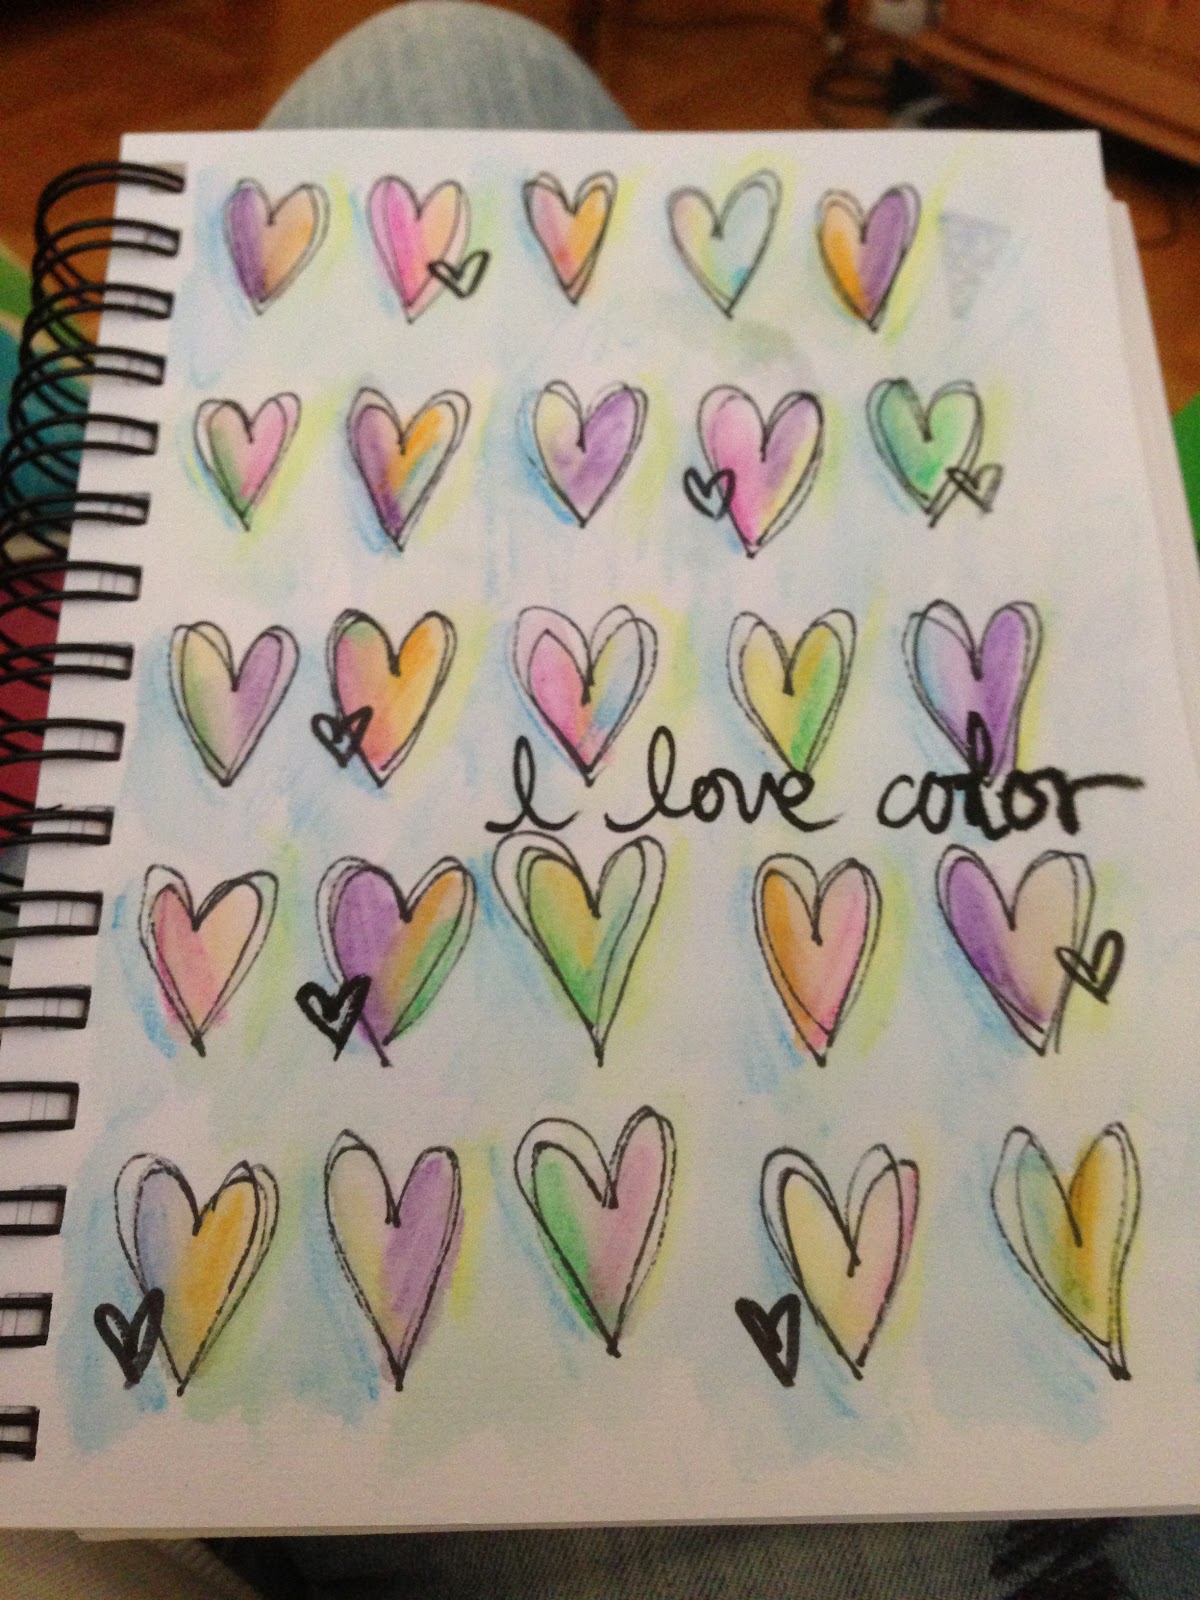 I love color